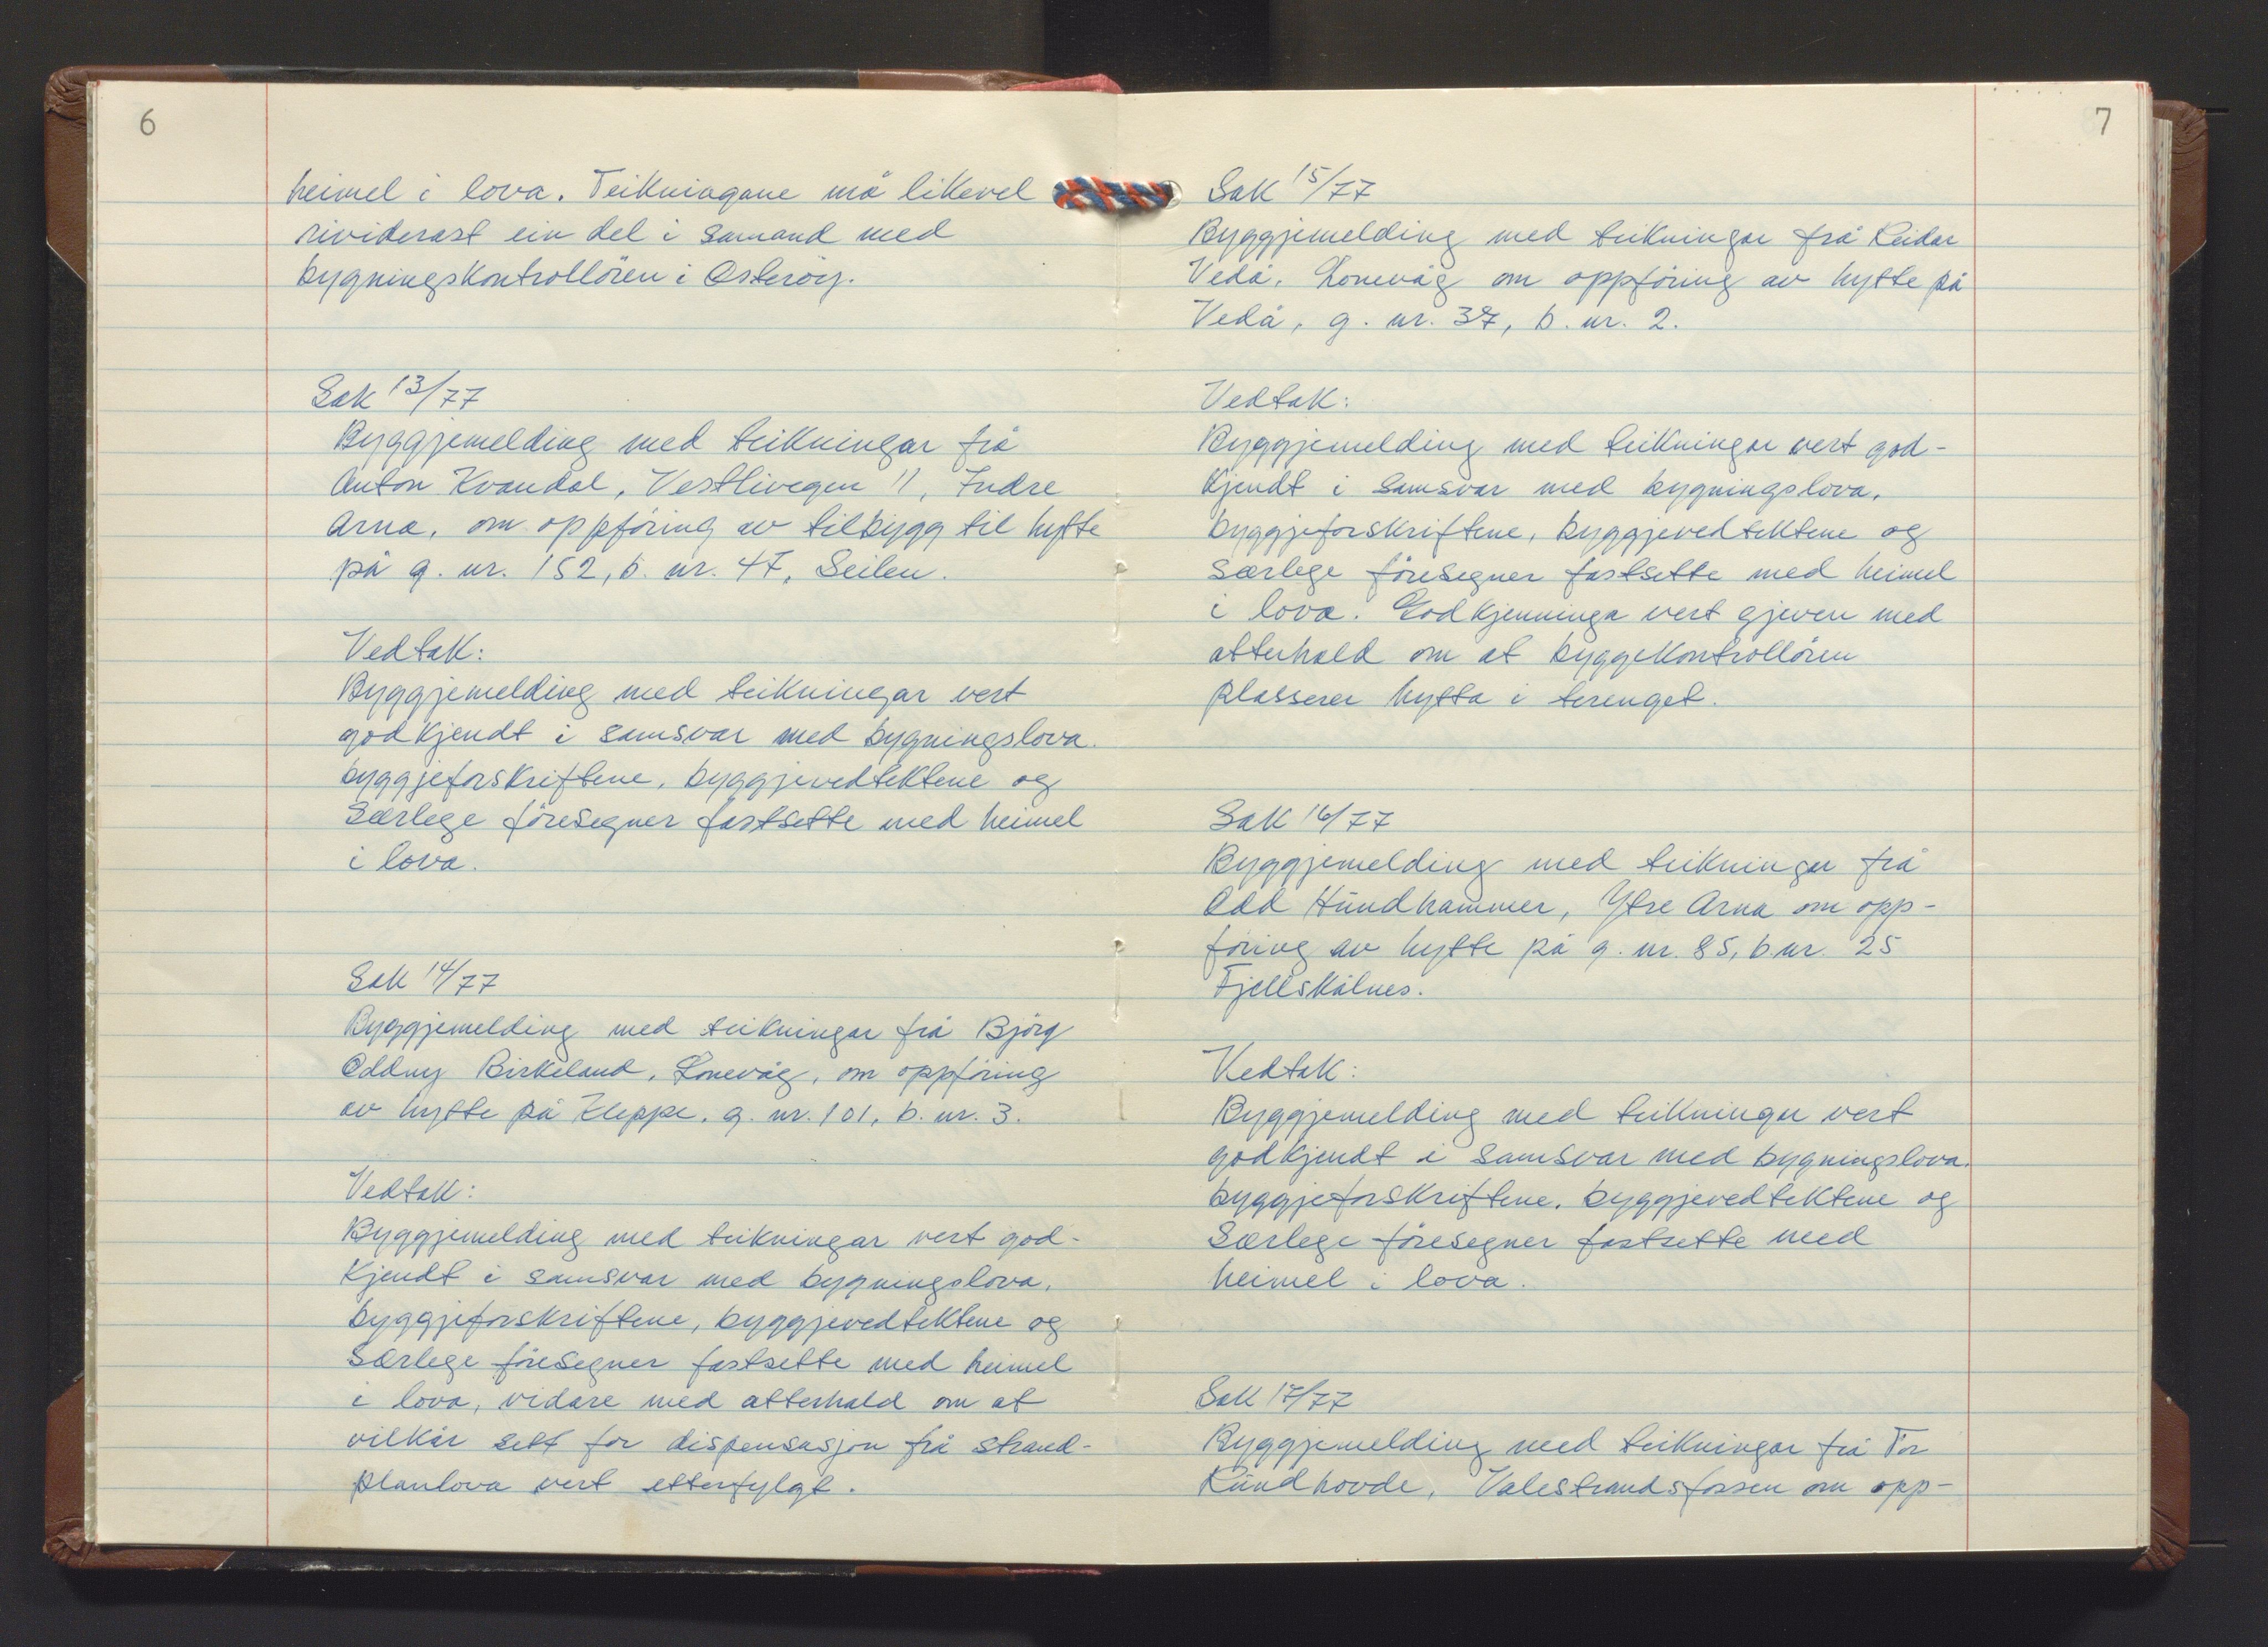 6
heimel i lova. Teikningane må likevel
rividerast ein del i samand med
bygningskontrollören i Osteröy.
Sak 13/77
Byggjemelding med teikningar frå
Anton Kvandal, Vestlivegen 11, Indre
Arna, om oppföring av tilbygg til hytte
på g. nr. 152, b. nr. 47, Seilen.
Vedtak:
Byggjemelding med teikningar vert
godkjendt i samsvar med bygningslova.
byggjeforskriftene, byggjevedtektene og
særlege föresegner fastsette med heimel
i lova.
Sak 14/77
Byggjemelding med teikningar frå Björg
Oddny Birkeland, Lonevåg, om oppföring
av hytte på Kleppe, g. nr. 101, b. nr. 3.
Vedtak:
Byggjemelding med teikningar vert god-
kjendt i samsvar med bygningslova,
byggjeforskriftene, byggjevedtektene og
særlege föresegner fastsette med heimel
i lova, vidare med atterhald om at
vilkår sett for dispensasjon frå strand-
planlova vert etterfylgt.
7
Sak 15/77
Byggjemelding med teikningar frå Reidar
Vedå, Lonevåg om oppföring av hytte på
Vedå, g. nr. 37, b. nr. 2.
Vedtak:
Byggjemelding med teikningar vert god-
kjendt i samsvar med bygningslova,
byggjeforskriftene, byggjevedtektene og
særlege föresegner fastsette med heimel
i lova. Godkjenninga vert gjeven med
atterhald om at byggekontrollören
plasserer hytta i terenget.
Sak 16/77
Byggjemelding med teikningar frå
Odd Hundhammer, Ytre Arna om opp-
föring av hytte på g. nr. 85, b. nr. 25
Fjellskålnes.
Vedtak:
Byggjemelding med teikningar vert
godkjendt i samsvar med bygningslova.
byggjeforskriftene, byggjevedtektene og
særlege föresegner fastsette med
heimel i lova.
Sak 17/77
Byggjemelding med teikningar frå Tor
Rundhovde, Valestrandsfossen om opp-